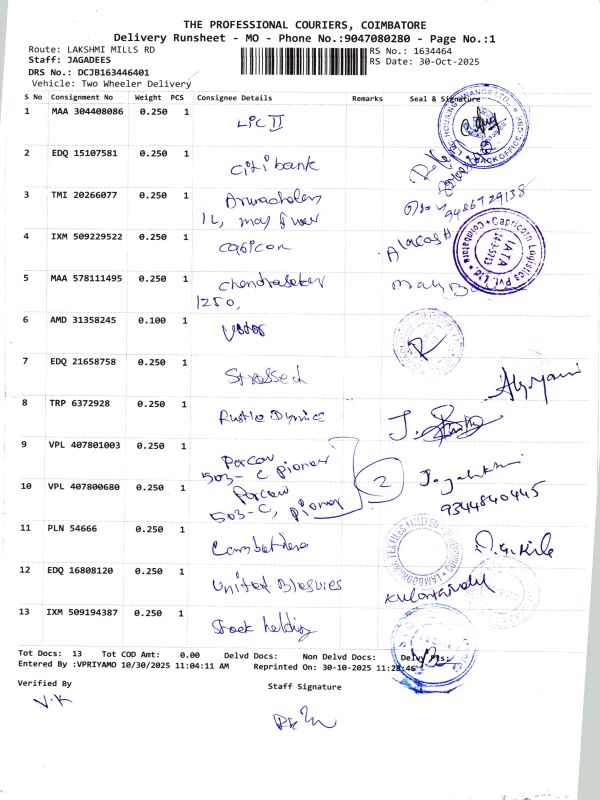 THE PROFESSIONAL COURIERS, COIMBATORE
Delivery Runsheet - MO - Phone No.:9047080280 - Page No.:1
Route: LAKSHMI MILLS RD
RS No.: 1634464
Staff: JAGADEES
RS Date: 30-Oct-2025
DRS No.: DCJB163446401
Vehicle: Two Wheeler Delivery
S No Consignment No Weight PCS Consignee Details Remarks Seal & Signature
1 MAA 304408086 0.250 1 LIC II
2 EDQ 15107581 0.250 1 Citi bank
3 TMI 20266077 0.250 1
9486729138
4 IXM 509229522 0.250 1
Capricorn Logistics Pvt. Ltd * Coimbatore *
IATA
14-3-5793
5 MAA 578111495 0.250 1 Chandrasekar
1250,
6 AMD 31358245 0.100 1
7 EDQ 21658758 0.250 1
8 TRP 6372928 0.250 1 Rustle
9 VPL 407801003 0.250 1 Porcow
503- C pioner
10 VPL 407800680 0.250 1 Porcow
503- C, pioner
2
9344840445
11 PLN 54666 0.250 1
12 EDQ 16808120 0.250 1 United
13 IXM 509194387 0.250 1 Stock holding
Tot Docs: 13 Tot COD Amt: 0.00 Delvd Docs: Non Delvd Docs: Delvy Pts:
Entered By :VPRIYAMO 10/30/2025 11:04:11 AM Reprinted On: 30-10-2025 11:28:46
Verified By
Staff Signature
V.K